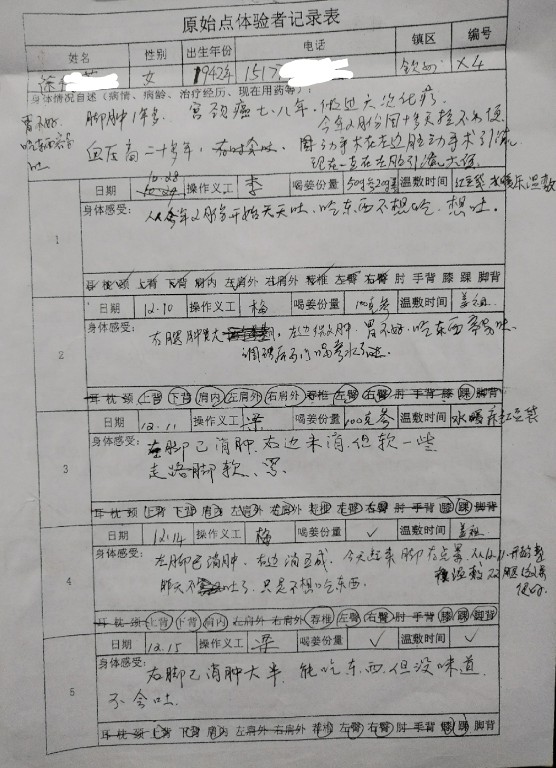 原始点体验者记录表
姓名 性别 出生年份 电话 镇区 编号
徐 女 1942年 1517 钦州 X4
身体情况自述（病情、病龄、治疗经历、现在用药等）：
胃不好 脚肿1年多. 宫颈癌七、八年. 做过六次化疗
吃东西容易吐
血压高二十多年，有时会吐.
现在一直在左脚引流大便
日期 10.28 操作义工 李 喝姜份量 50g 温敷时间 红豆袋
身体感受： 从今年2月份开始天天吐、吃东西不想吃. 想吐。
1
耳 枕 颈 上背 下背 肩内 左肩外 右肩外 脊椎 左臀 右臀 肘 手背 膝 踝 脚背
日期 12.10 操作义工 梅 喝姜份量 100克参 温敷时间
身体感受： 右腿肿大 左边 肿. 胃不好. 吃东西容易吐
2
耳 枕 颈 上背 下背 肩内 左肩外 右肩外 脊椎 左臀 右臀 肘 手背 膝 踝 脚背
日期 12.11 操作义工 梁 喝姜份量 100克参 温敷时间 水暖 红豆袋
身体感受： 左脚已消肿. 右边未消. 但软一些
3 走路脚软、累
耳 枕 颈 上背 下背 肩内 左肩外 右肩外 脊椎 左臀 右臀 肘 手背 膝 踝 脚背
日期 12.14 操作义工 梅 喝姜份量 ✓ 温敷时间
身体感受： 左脚已消肿. 右边消五成. 今天起来脚有点累.
昨天不吐了. 只是不想吃东西.
4
耳 枕 颈 上背 下背 肩内 左肩外 右肩外 脊椎 左臀 右臀 肘 手背 膝 踝 脚背
日期 12.15 操作义工 梁 喝姜份量 ✓ 温敷时间 ✓
身体感受： 右脚已消肿大半. 能吃东西. 但没味道
5 不会吐.
耳 枕 颈 上背 下背 肩内 左肩外 右肩外 脊椎 左臀 右臀 肘 手背 膝 踝 脚背